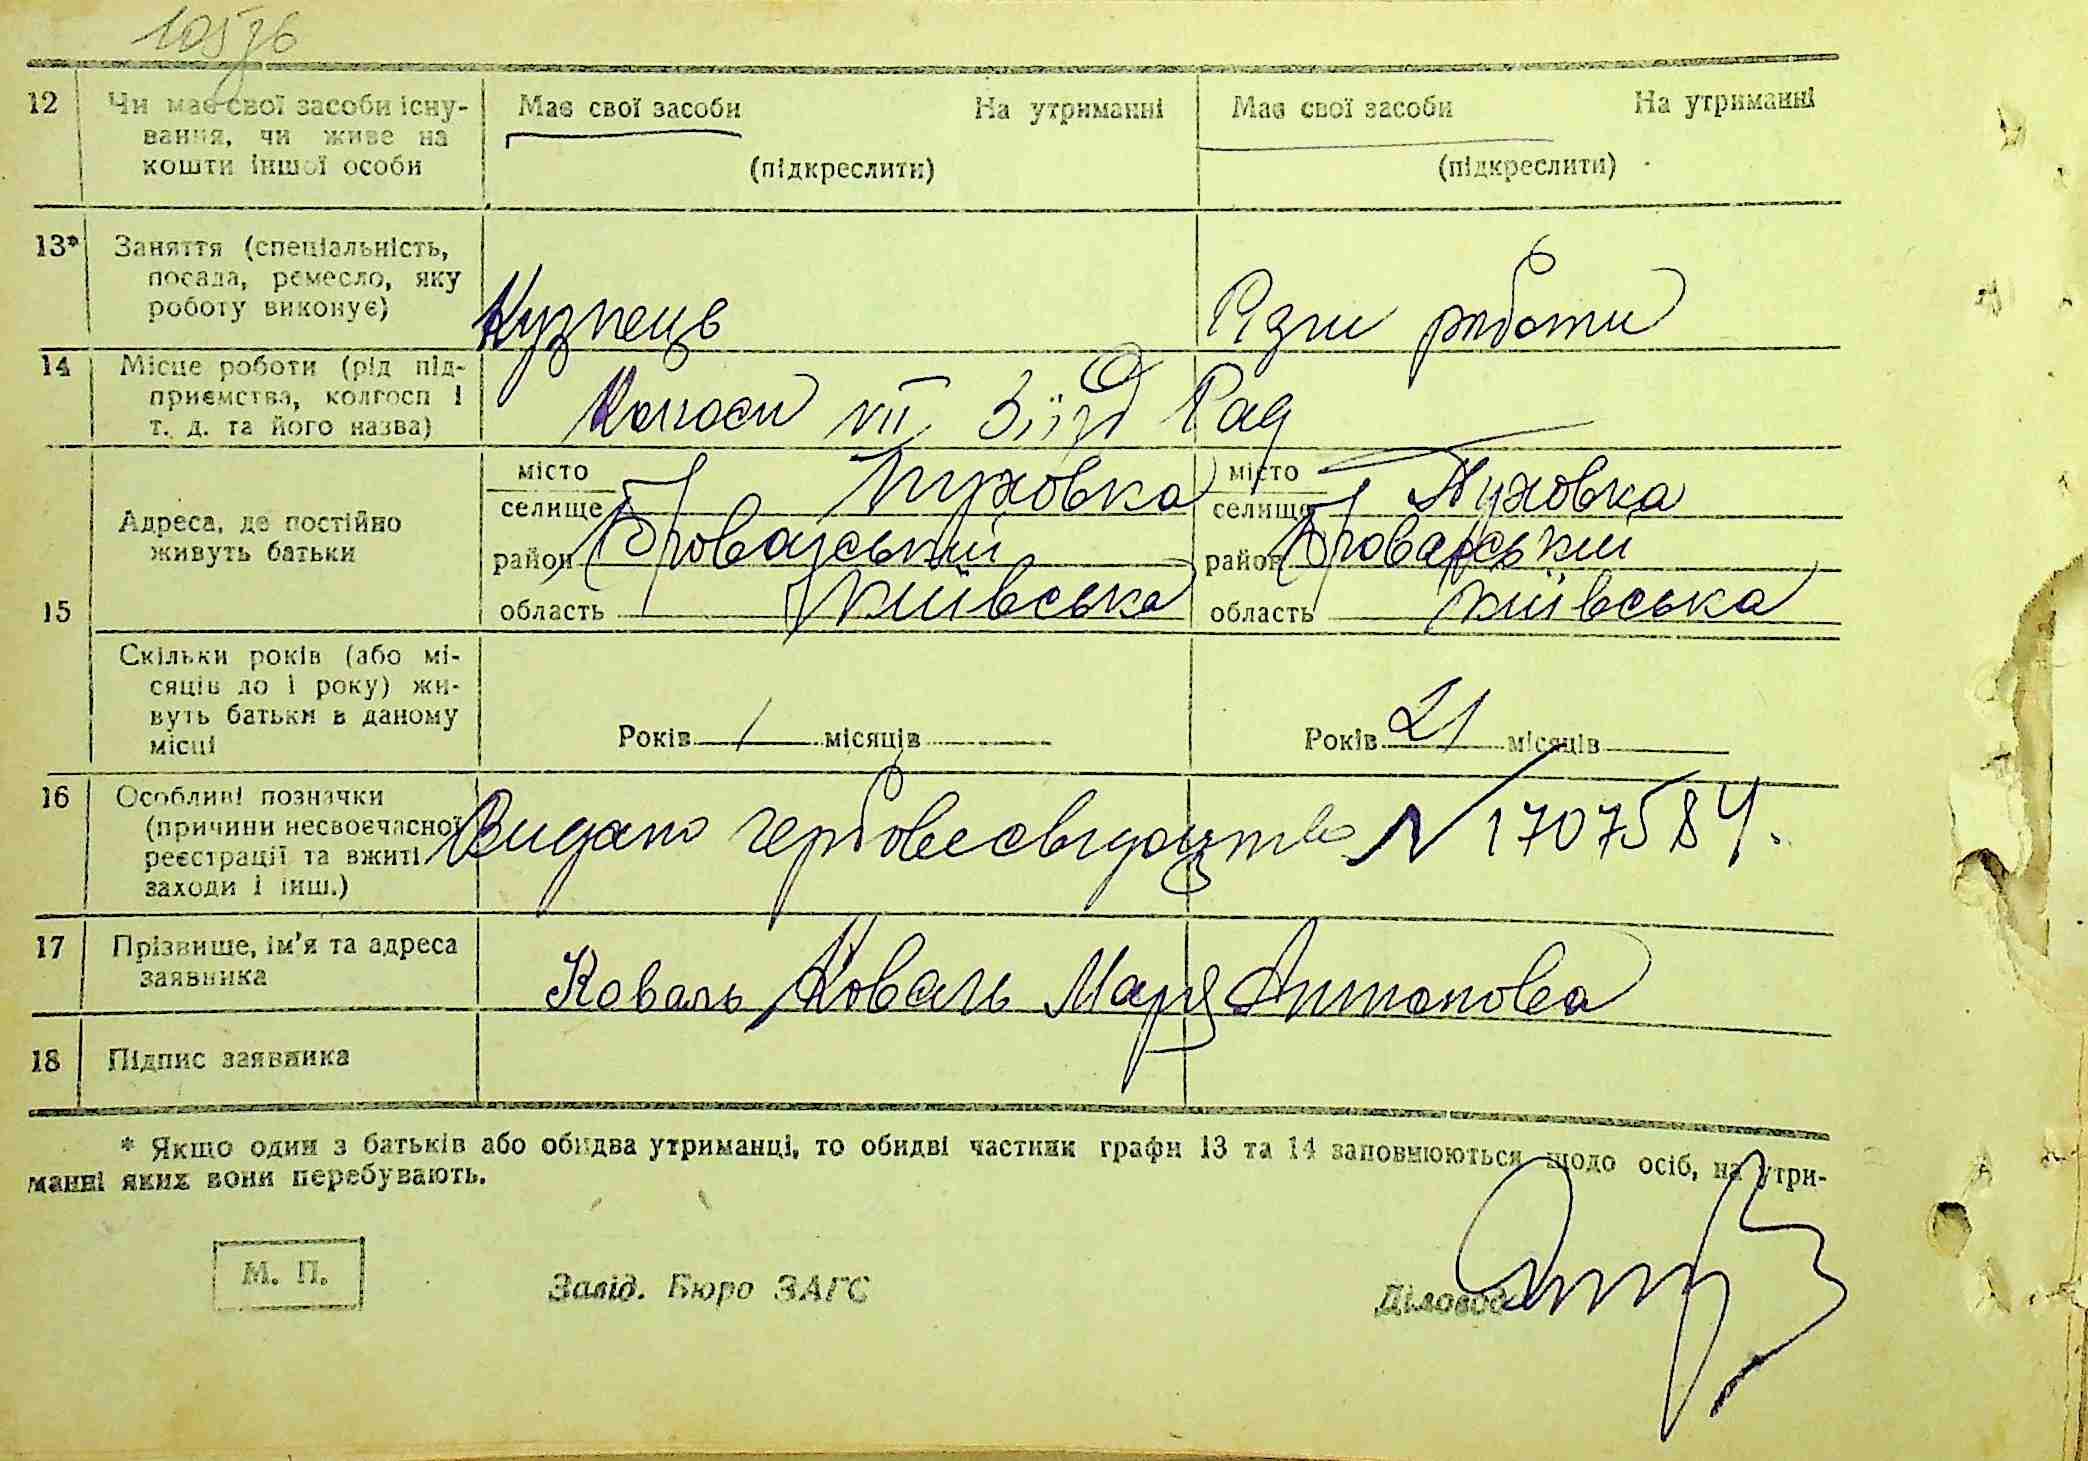 10576
12 Чи має свої засоби існу- Має свої засоби На утриманні Має свої засоби На утриманні
вання, чи живе на
кошти іншої особи (підкреслити) (підкреслити)
13* Заняття (спеціальність,
посада, ремесло, яку
роботу виконує) Кузнець Різни роботи
14 Місце роботи (рід під-
приємства, колгосп і
т. д. та його назва) Колгосп VII Зїізд Рад
місто Пуховка місто Пуховка
селище селище
Адреса, де постійно
живуть батьки
район Броварський район Броварський
15 область Київська область Київська
Скільки років (або мі-
сяців до 1 року) жи-
вуть батьки в даному
місці Років 1 місяців Років 21 місяців
16 Особливі позначки
(причини несвоєчасної
реєстрації та вжиті
заходи і інш.) Видано гербове свідоцтво N 1707584.
17 Прізвище, ім'я та адреса
заявника Коваль Коваль Марія Антоновна
18 Підпис заявника
* Якщо один з батьків або обидва утриманці, то обидві частини графи 13 та 14 заповнюються щодо осіб, на утри-
манні яких вони перебувають.
М. П. Завід. Бюро ЗАГС Діловод